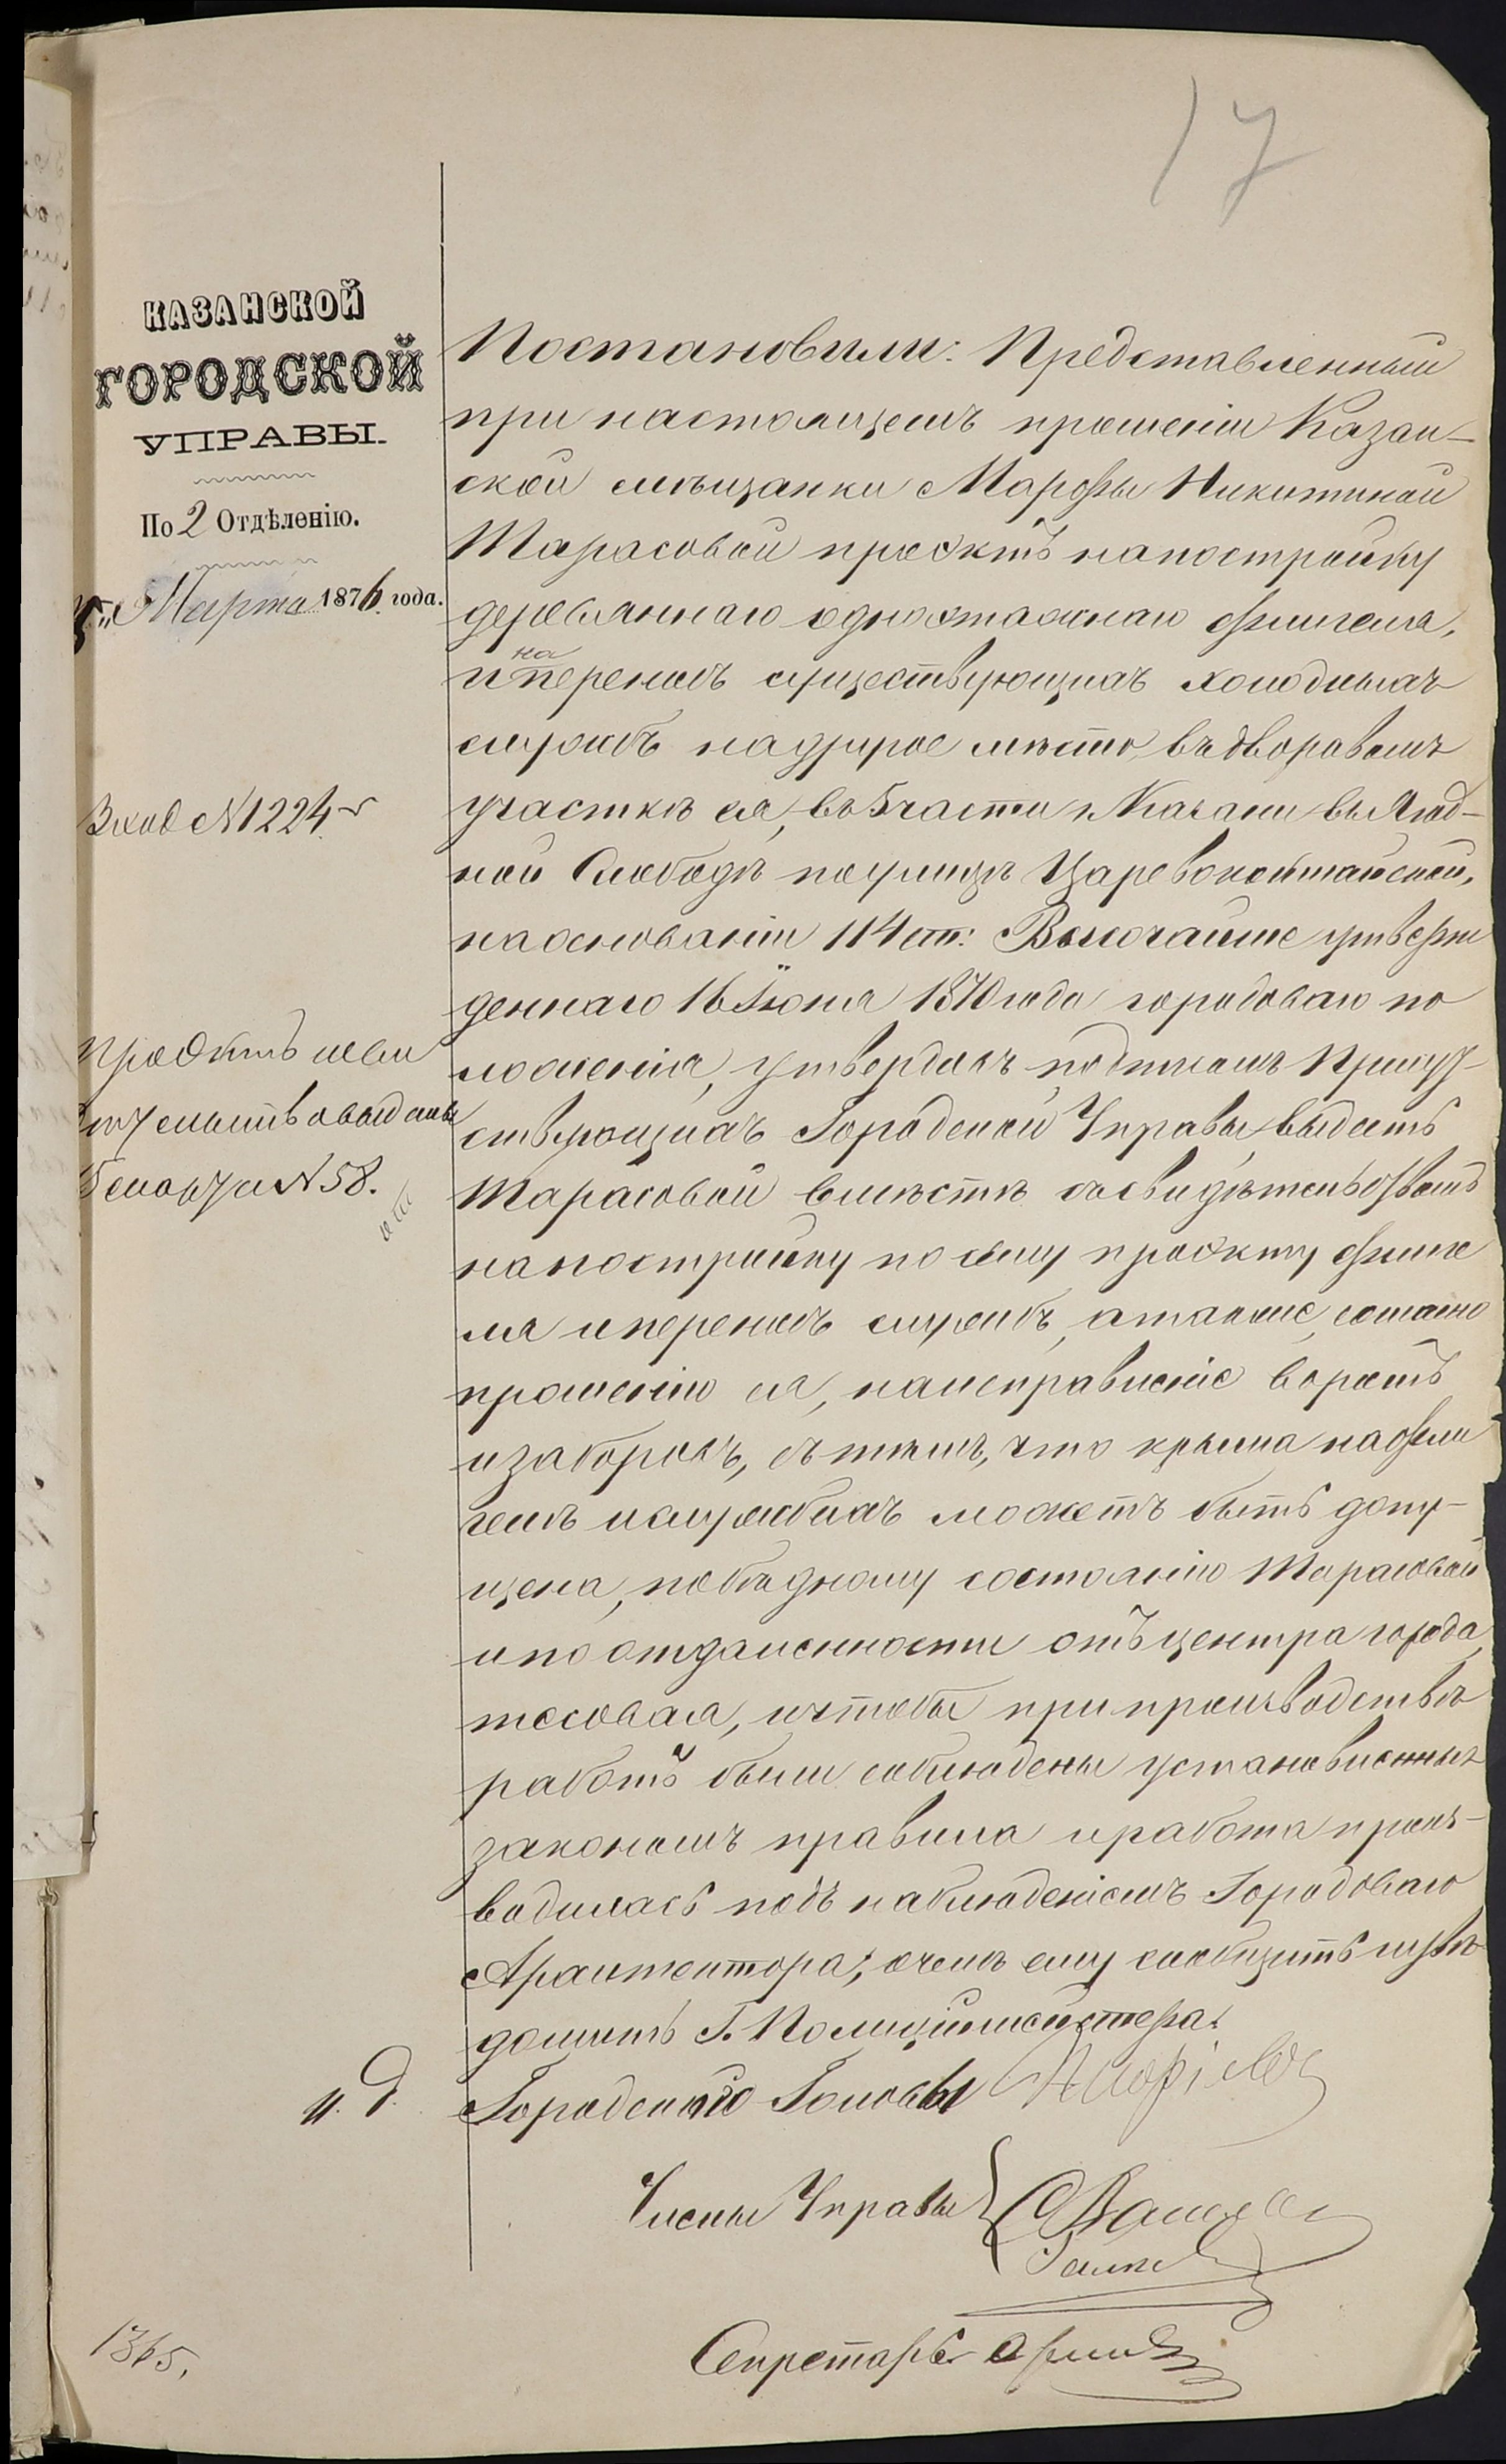 17
КАЗАНСКОЙ
ГОРОДСКОЙ
УПРАВЫ.
По 2 Отдѣленію.
Марта 1876 года.
Вход №1224
Проэктъ и сви
выданы
№ 58.
Постановили: Представленный
при настоящемъ прошеніи Казан-
ской мѣщанки Марѳы Никитиной
Тарасовой проэктъ на постройку
деревяннаго одноэтажнаго флигеля,
и на переносъ существующихъ холодныхъ
службъ на другое мѣсто, въ дворовомъ
участкѣ ея, въ 5 части г. Казани въ Ягод-
ной Слободѣ по улицѣ Царевококшайской,
на основаніи 114 ст: Высочайше утверж
деннаго 16 Іюня 1870 года городоваго по
ложенія, утвердивъ подписомъ Присут-
ствующихъ Городской Управы, выдать
Тарасовой вмѣстѣ съ свидѣтельствомъ
на постройку по сему проэкту флиге
ля и переносъ службъ, а также, согласно
прошенію ея, на исправленіе воротъ
и заборовъ, съ тѣмъ, что крыша на фли
гелѣ и службахъ можетъ быть допу-
щена, по бѣдному состоянію Тарасовой
и по отдаленности отъ центра города,
тесовая, и чтобы при производствѣ
работъ были соблюдены установленныя
закономъ правила и работа произ-
водилась подъ наблюденіемъ Городоваго
Архитектора; о чемъ ему сообщить и увѣ
домить Г. Полиціймейстера.
и. д. Городскаго Головы
Члены Управы
Секретарь
1365.